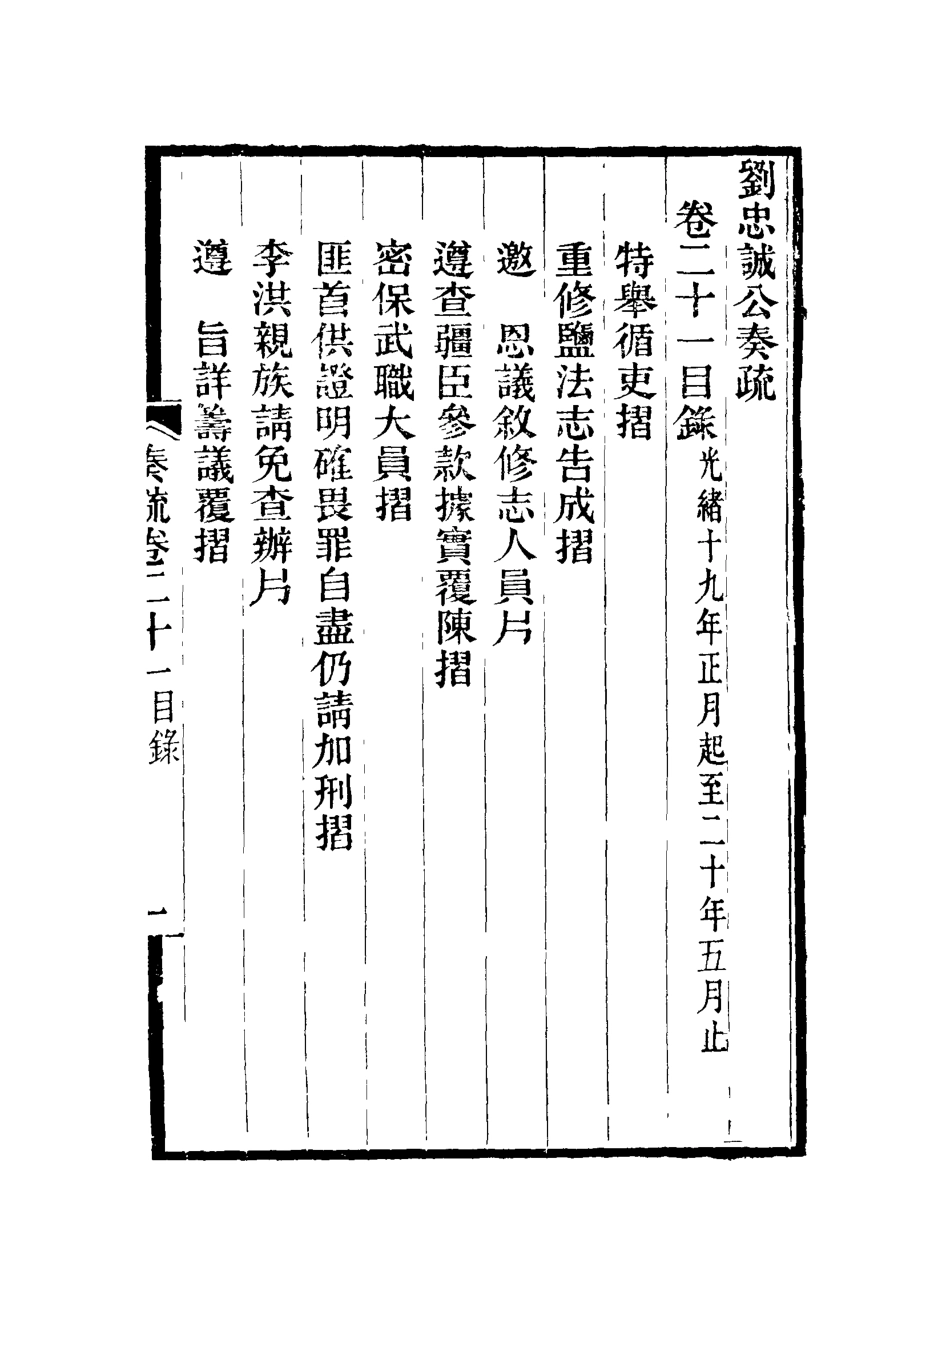 劉忠誠公奏疏
卷二十一目錄光緒十九年正月起至二十年五月止
特舉循吏摺
重修鹽法志告成摺
邀　恩議敘修志人員片
遵查疆臣參款據實覆陳摺
密保武職大員摺
匪首供證明確畏罪自盡仍請加刑摺
李洪親族請免查辦片
遵　旨詳籌議覆摺
奏疏卷二十一目錄　一